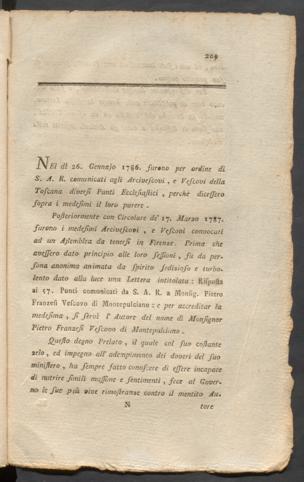 209
NEl dì 26. Gennajo 1786. furono per ordine di
S. A. R. comunicati agli Arcivescovi, e Vescovi della
Toscana diversi Punti Ecclesiastici, perchè dicessero
sopra i medesimi il loro parere.
Posteriormente con Circolare de' 17. Marzo 1787.
furono i medesimi Arcivescovi, e Vescovi convocati
ad un Assemblea da tenersi in Firenze. Prima che
avessero dato principio alle loro sessioni, fu da per-
sona anonima animata da spirito sedizioso e turbo-
lento dato alla luce una Lettera intitolata: Risposta
ai 57. Punti comunicati da S. A. R. a Monsig. Pietro
Franzesi Vescovo di Montepulciano: e per accreditar la
medesima, si servì l' Autore del nome di Monsignor
Pietro Franzesi Vescovo di Montepulciano.
Questo degno Prelato, il quale col suo costante
zelo, ed impegno all' adempimento dei doveri del suo
ministero, ha sempre fatto conoscere di essere incapace
di nutrire simili massime e sentimenti, fece al Gover-
no le sue più vive rimostranze contro il mentito Au-
N
tore